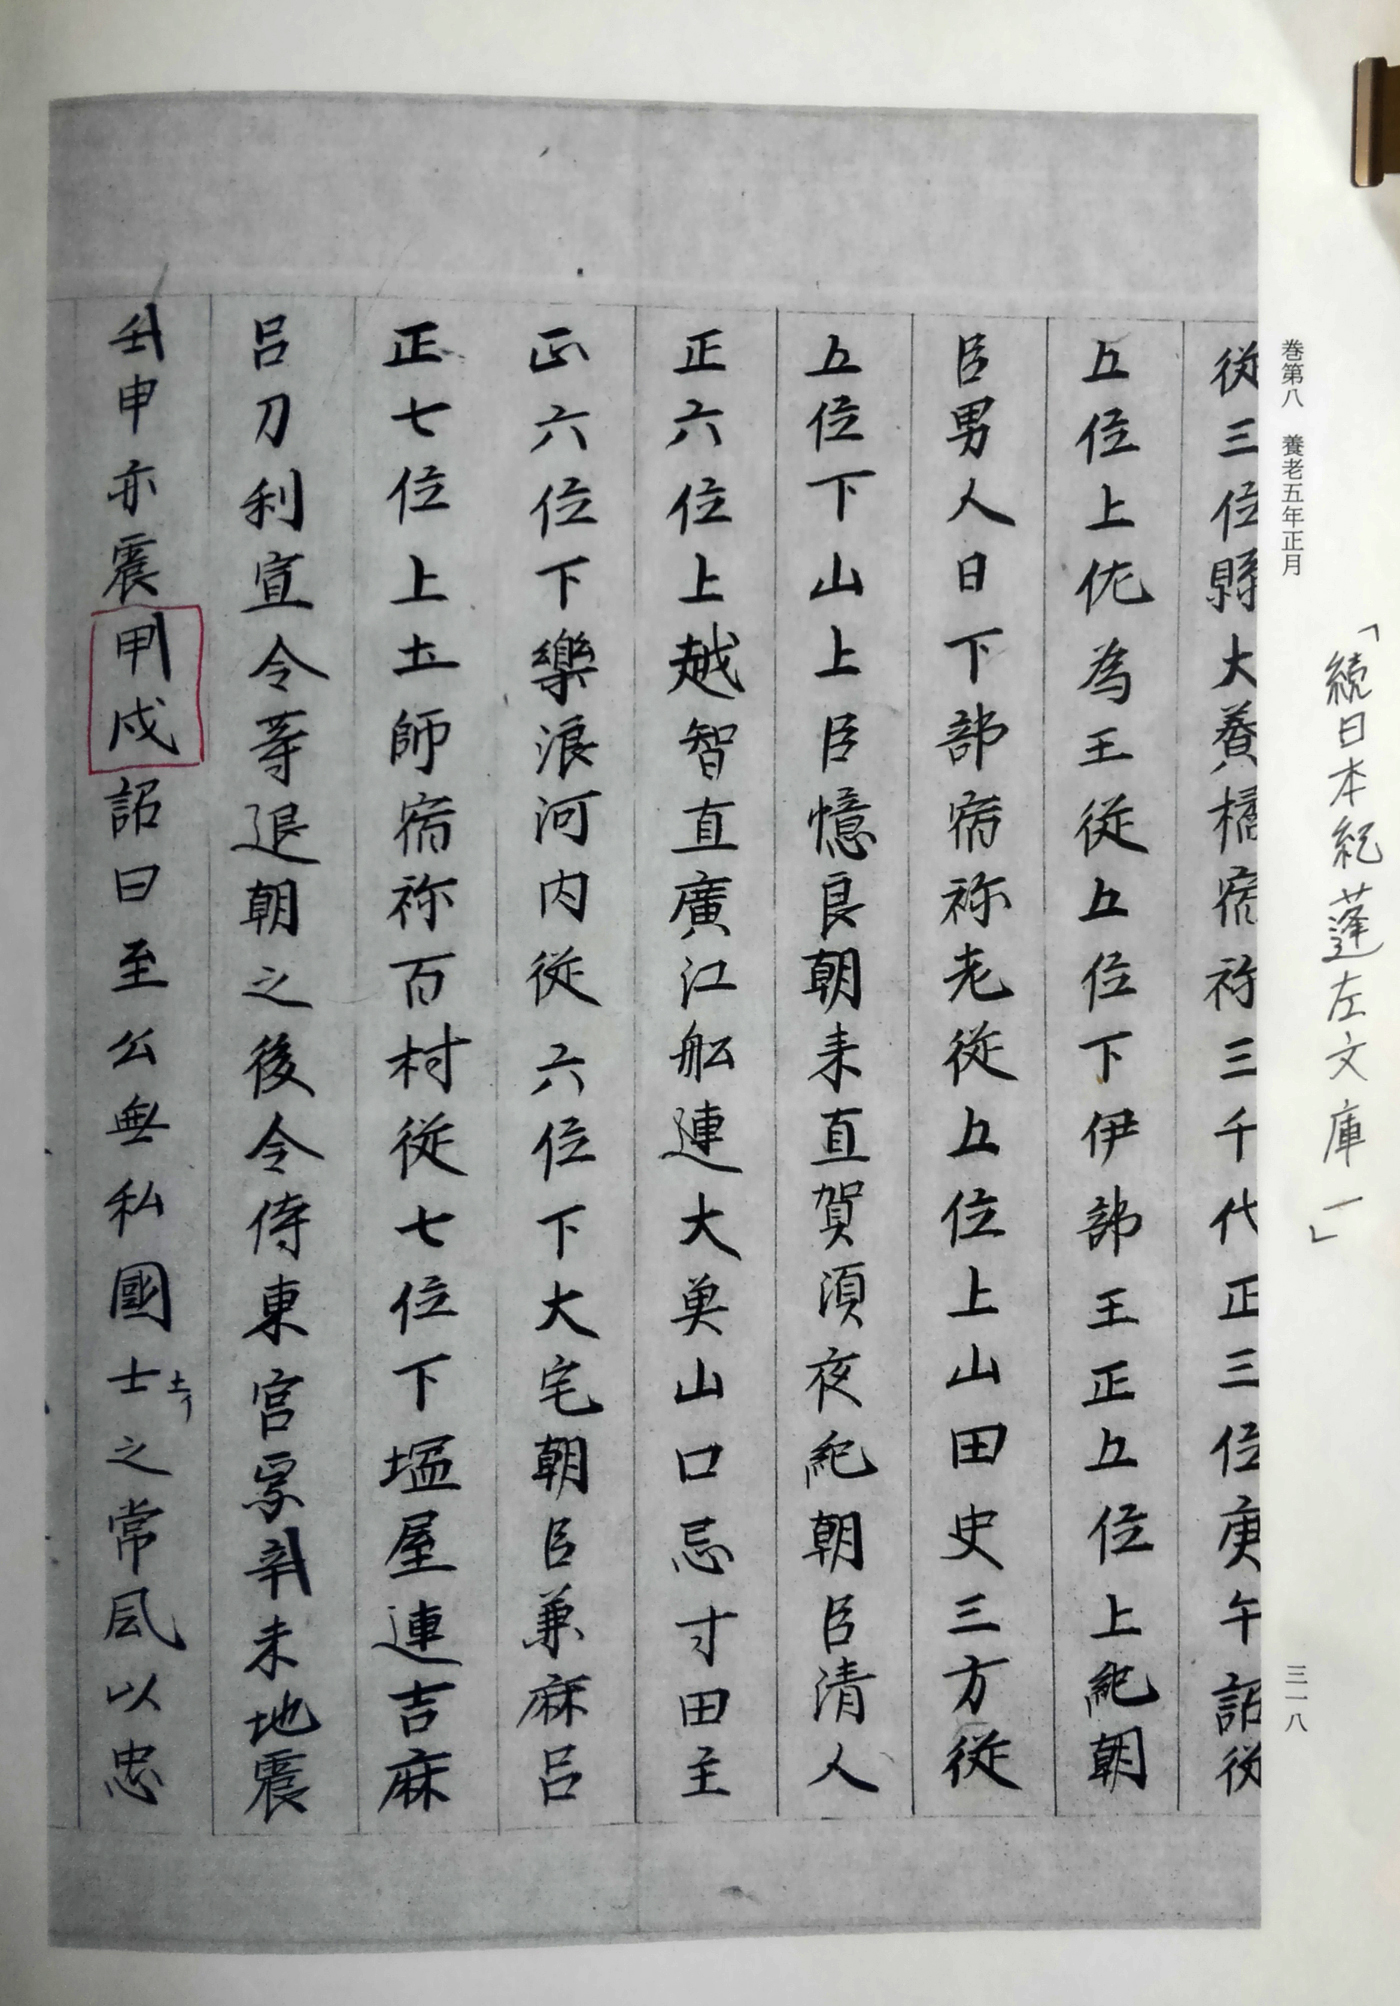 「続日本紀蓬左文庫一」
巻第八　養老五年正月
三一八
従三位縣大養橘宿祢三千代正三位庚午詔従
五位上佐為王従五位下伊部王正五位上紀朝
臣男人日下部宿祢老従五位上山田史三方従
五位下山上臣憶良朝来直賀須夜紀朝臣清人
正六位上越智直廣江船連大魚山口忌寸田主
正六位下樂浪河内従六位下大宅朝臣兼麻呂
正七位上土師宿祢百村従七位下塩屋連吉麻
呂刀利宣令等退朝之後令侍東宮焉辛未地震
壬申亦震甲戌詔曰至公無私國士之常風以忠
土イ